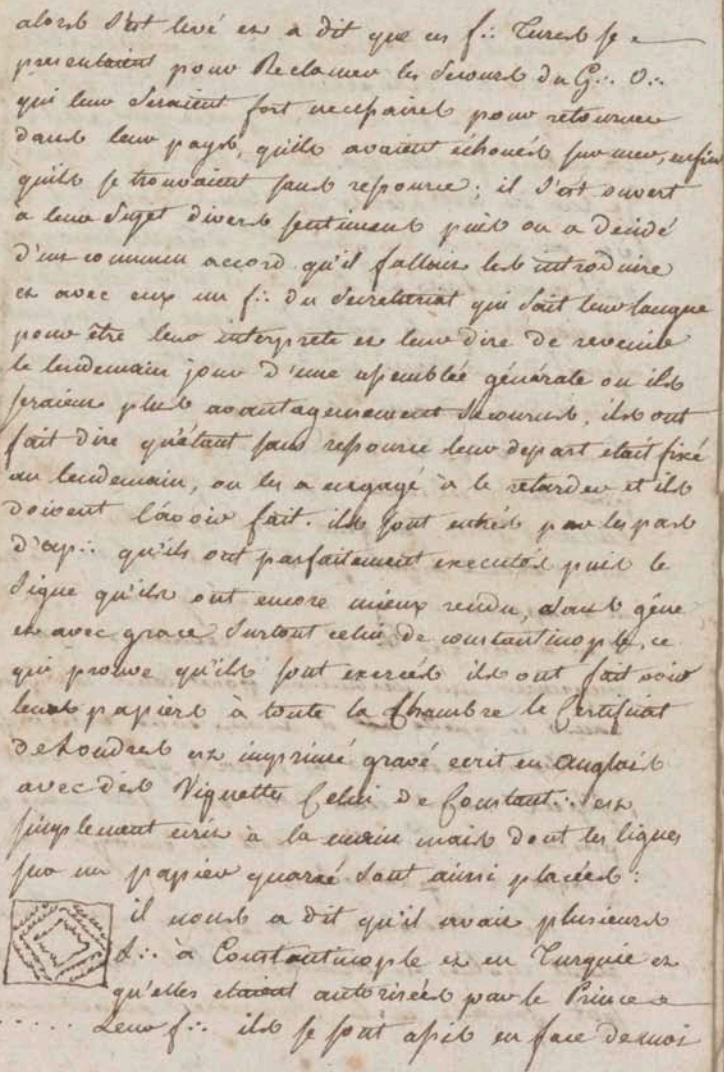 alors s'est levé et a dit que ces f∴ Turcs se
presentaient pour Reclamer les secours du G∴ O∴
qui leur seraient fort necessaires pour retourner
dans leur pays, qu'ils avaient échoués sur mer, enfin
qu'ils se trouvaient sans ressource; il s'est ouvert
a leur sujet divers sentiments puis on a décidé
d'un commun accord qu'il fallait les introduire
et avec eux un f∴ du Secretariat qui sait leur langue
pour être leur interprete et leur dire de revenir
le lendemain jour d'une assemblée générale ou ils
seraient plus avantageusement secourus, ils ont
fait dire qu'étant sans ressource leur depart etait fixé
au lendemain, on les a engagé à le retarder et ils
doivent l'avoir fait. ils sont entrés par les pas
d'ap∴ qu'ils ont parfaitement executés puis le
signe qu'ils ont encore mieux rendu, sans gêne
et avec grace surtout celui de constantinople, ce
qui prouve qu'ils sont exercés ils ont fait voir
leurs papiers à toute la Chambre le Certificat
de Londres est imprimé gravé ecrit en anglais
avec des Vignettes Celui de Constant∴ est
simplement ecrit à la main mais dont les lignes
sur un papier quarré sont ainsi placées:
il nous a dit qu'il avait plusieurs
L∴ à Constantinople et en Turquie et
qu'elles etaient autorisées par le Prince
..... Leur f∴ ils se sont assis en face de moi